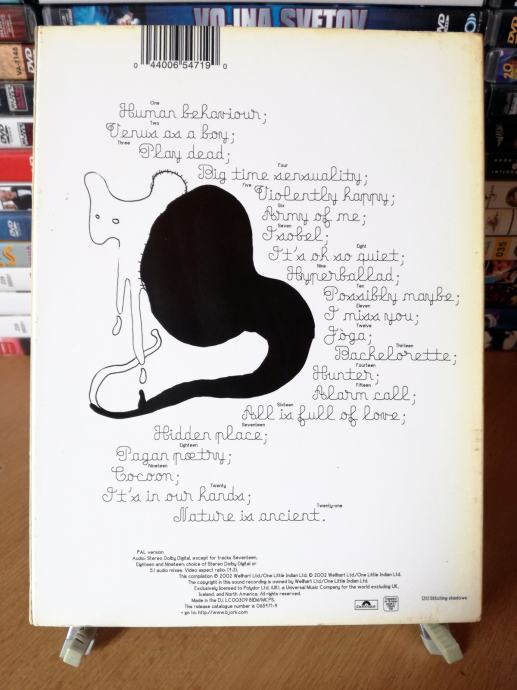 VOJNA SVETOV
0 44006 54719 0
One
Human behaviour;
Two
Venus as a boy;
Three
Play dead;
Four
Big time sensuality;
Five
Violently happy;
Six
Army of me;
Seven
Isobel;
Eight
It's oh so quiet;
Nine
Hyperballad;
Ten
Possibly maybe;
Eleven
I miss you;
Twelve
Jòga;
Thirteen
Bachelorette;
Fourteen
Hunter;
Fifteen
Alarm call;
Sixteen
All is full of love;
Seventeen
Hidden place;
Eighteen
Pagan poetry;
Nineteen
Cocoon;
Twenty
It's in our hands;
Twenty-one
Nature is ancient.
PAL version
Audio: Stereo Dolby Digital, except for tracks Seventeen,
Eighteen and Nineteen, choice of Stereo Dolby Digital or
5.1 audio mixes. Video aspect ratio: (4:3).
This compilation ℗ 2002 Wellhart Ltd/One Little Indian Ltd. © 2002 Wellhart Ltd/One Little Indian Ltd.
The copyright in this sound recording is owned by Wellhart Ltd/One Little Indian Ltd.
Exclusively licensed to Polydor Ltd. (UK), a Universal Music Company for the world excluding UK,
Iceland, and North America. All rights reserved.
Made in the EU. LC00309 BIEM/MCPS.
This release catalogue number is 065471-9
- go to: http://www.bjork.com
Polydor
(21) Stitching shadows
VA-2148
DVD
035